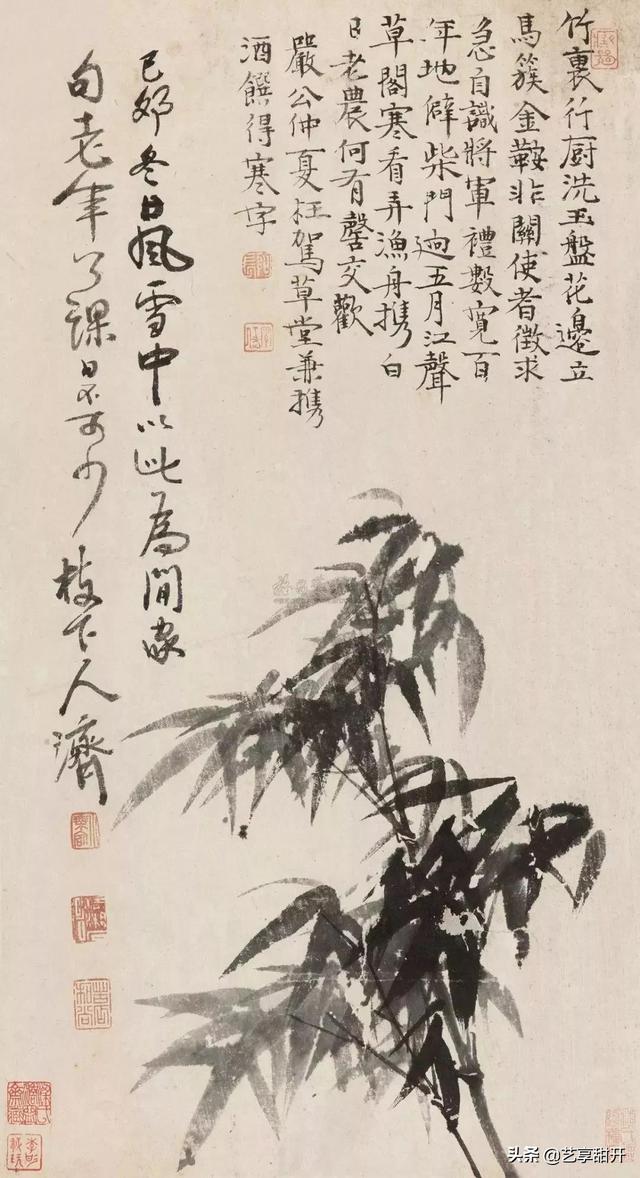 竹裏行厨洗玉盤花邊立
馬簇金鞍非關使者徵求
急自識將軍禮數寬百
年地僻柴門逈五月江聲
草閣寒看弄漁舟携白
日老農何有罄交歡
嚴公仲夏枉駕草堂兼携
酒饌得寒字
己卯冬日風雪中以此為閒
句老年了課日不可少枝下人濟
头条 @艺享甜开